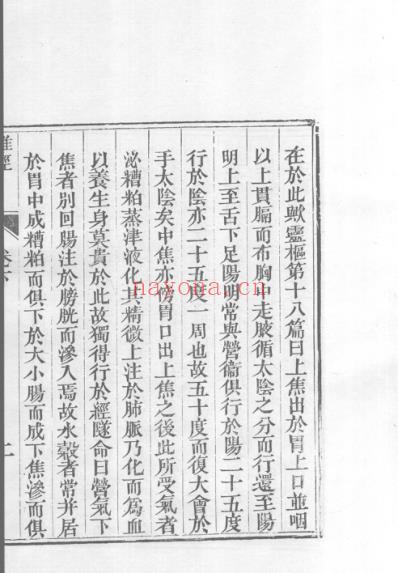 在於此歟靈樞第十八篇曰上焦出於胃上口並咽
以上貫膈而布胸中走腋循太陰之分而行還至陽
明上至舌下足陽明常與營衞俱行於陽二十五度
行於陰亦二十五度一周也故五十度而復大會於
手太陰矣中焦亦傍胃口出上焦之後此所受氣者
泌糟粕蒸津液化其精微上注於肺脈乃化而爲血
以養生身莫貴於此故獨得行於經隧命曰營氣下
焦者別回腸注於膀胱而滲入焉故水穀者常并居
於胃中成糟粕而俱下於大小腸而成下焦滲而俱
難經
卷下
二
nayona.cn